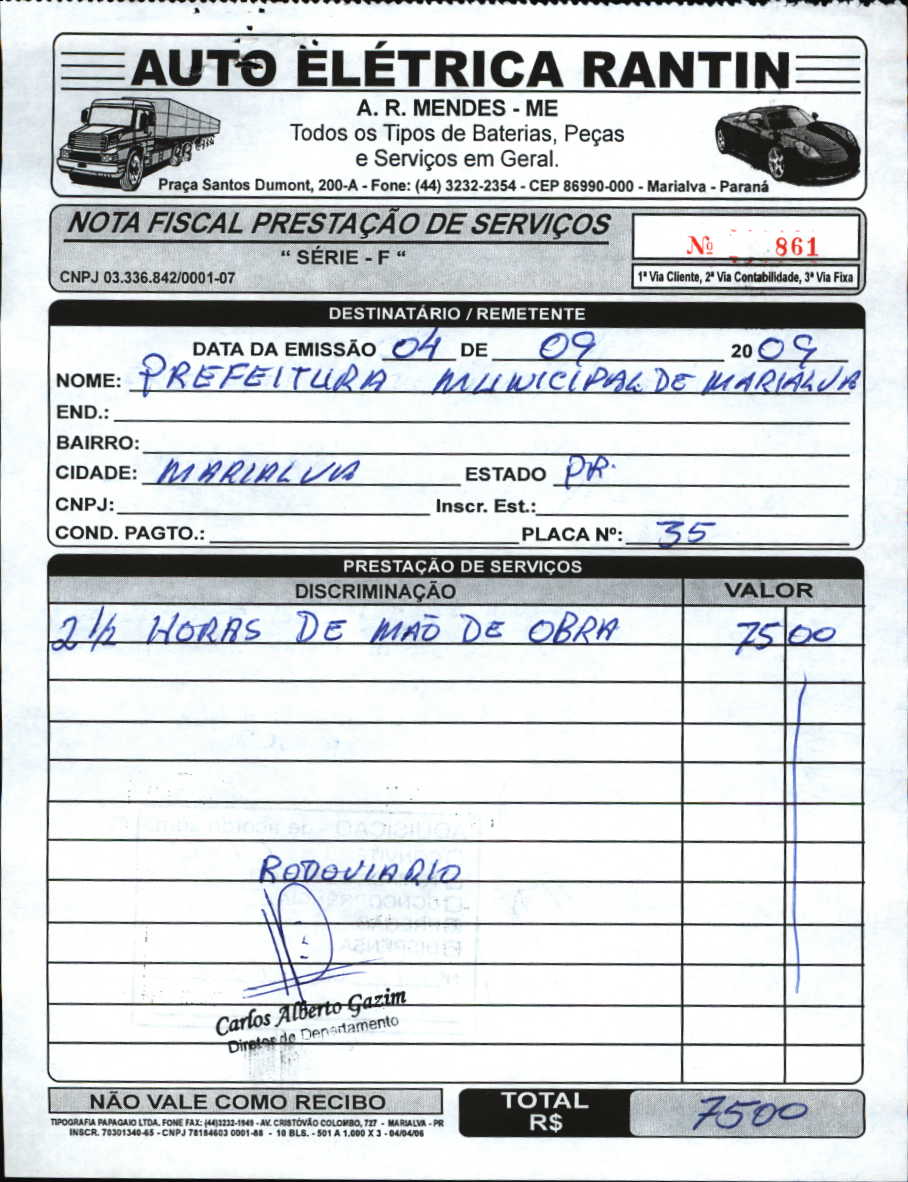 AUTO ELÉTRICA RANTIN
A. R. MENDES - ME
Todos os Tipos de Baterias, Peças
e Serviços em Geral.
Praça Santos Dumont, 200-A - Fone: (44) 3232-2354 - CEP 86990-000 - Marialva - Paraná
NOTA FISCAL PRESTAÇÃO DE SERVIÇOS
“ SÉRIE - F “
Nº 861
CNPJ 03.336.842/0001-07
1ª Via Cliente, 2ª Via Contabilidade, 3ª Via Fixa
DESTINATÁRIO / REMETENTE
DATA DA EMISSÃO 04 DE 09 20 09
NOME: PREFEITURA MUNICIPAL DE MARIALVA
END.:
BAIRRO:
CIDADE: MARIALVA ESTADO PR.
CNPJ: Inscr. Est.:
COND. PAGTO.: PLACA Nº: 35
PRESTAÇÃO DE SERVIÇOS
DISCRIMINAÇÃO VALOR
2 1/2 HORAS DE MAO DE OBRA 75 00
RODOVIARIO
Carlos Alberto Gazim
Diretor de Departamento
NÃO VALE COMO RECIBO
TOTAL
R$ 7500
TIPOGRAFIA PAPAGAIO LTDA. FONE FAX: (44)3232-1949 - AV. CRISTÓVÃO COLOMBO, 727 - MARIALVA - PR
INSCR. 70301340-65 - CNPJ 78184603 0001-88 - 10 BLS. - 501 A 1.000 X 3 - 04/04/06